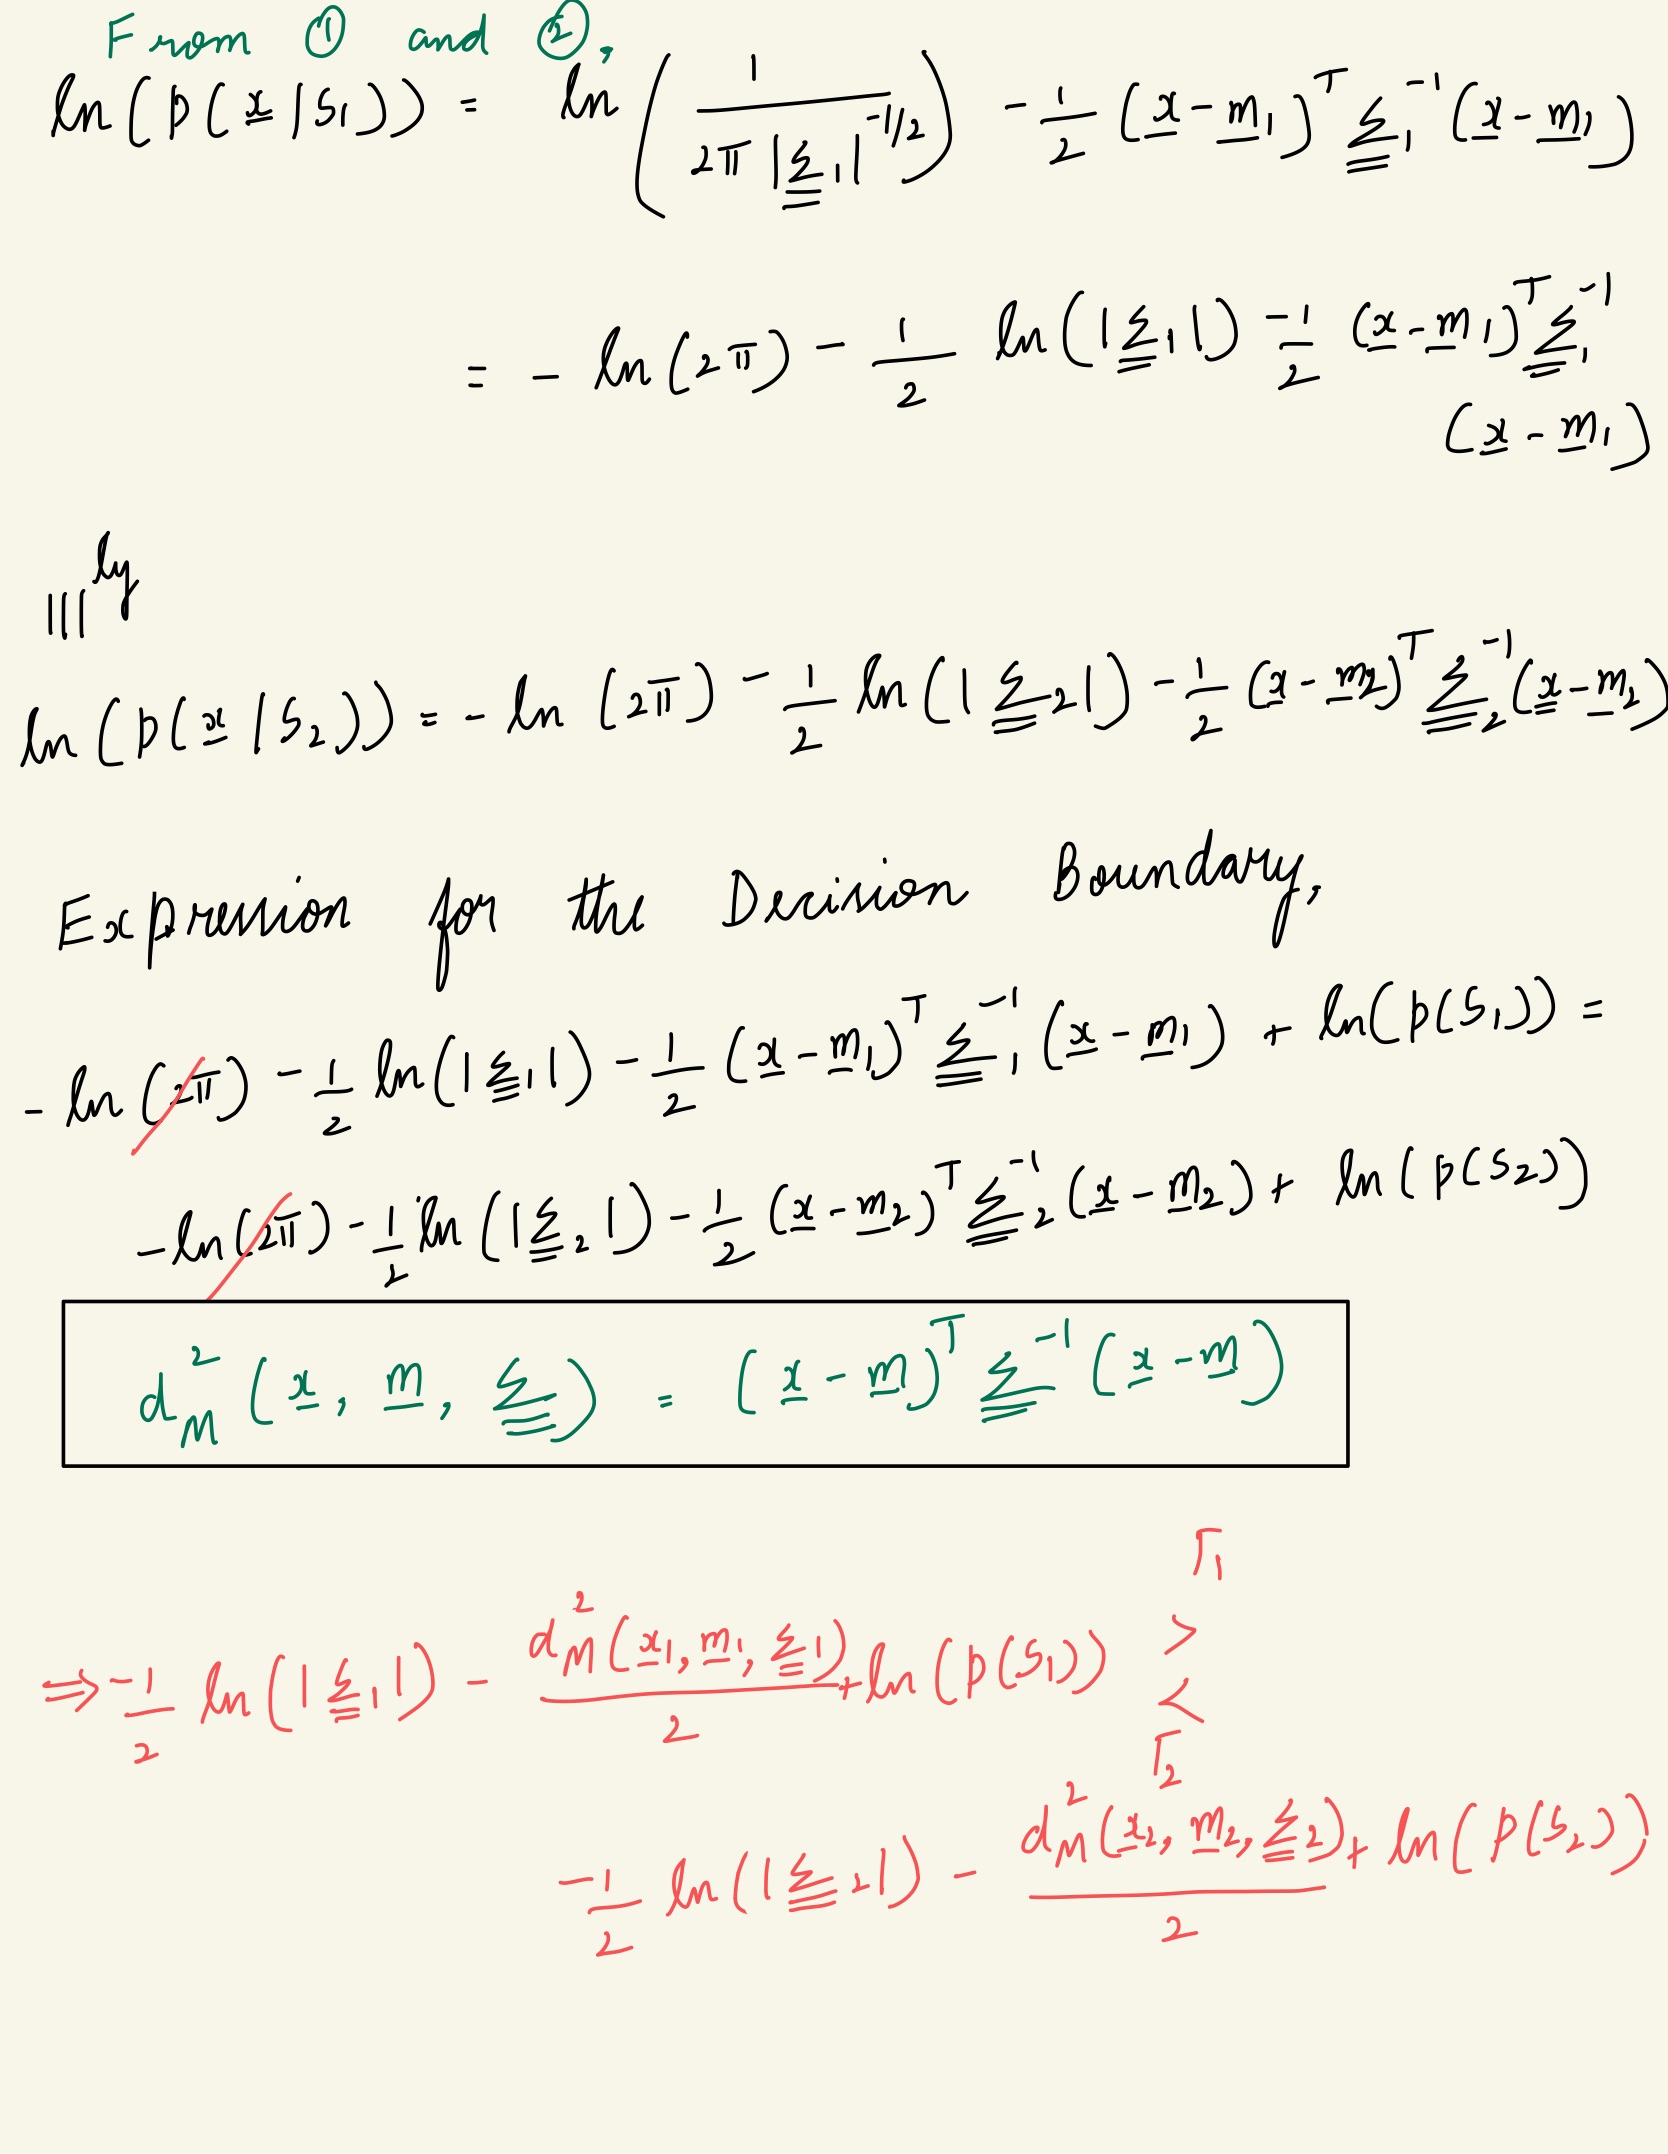 From ① and ②,
ln(p(x̲|S₁)) = ln(1 / (2π |Σ̳₁|^(-1/2))) - 1/2 (x̲ - m̲₁)^T Σ̳₁^(-1) (x̲ - m̲₁)
= - ln(2π) - 1/2 ln(|Σ̳₁|) - 1/2 (x̲ - m̲₁)^T Σ̳₁^(-1)
(x̲ - m̲₁)
|||ly
ln(p(x̲|S₂)) = - ln(2π) - 1/2 ln(|Σ̳₂|) - 1/2 (x̲ - m̲₂)^T Σ̳₂^(-1) (x̲ - m̲₂)
Expression for the Decision Boundary,
- ln(2π) - 1/2 ln(|Σ̳₁|) - 1/2 (x̲ - m̲₁)^T Σ̳₁^(-1) (x̲ - m̲₁) + ln(p(S₁)) =
- ln(2π) - 1/2 ln(|Σ̳₂|) - 1/2 (x̲ - m̲₂)^T Σ̳₂^(-1) (x̲ - m̲₂) + ln(p(S₂))
d²_M (x̲, m̲, Σ̳) = (x̲ - m̲)^T Σ̳^(-1) (x̲ - m̲)
Γ₁
⇒ -1/2 ln(|Σ̳₁|) - d²_M(x̲₁, m̲₁, Σ̳₁)/2 + ln(p(S₁)) > <
Γ₂
-1/2 ln(|Σ̳₂|) - d²_M(x̲₂, m̲₂, Σ̳₂)/2 + ln(p(S₂))